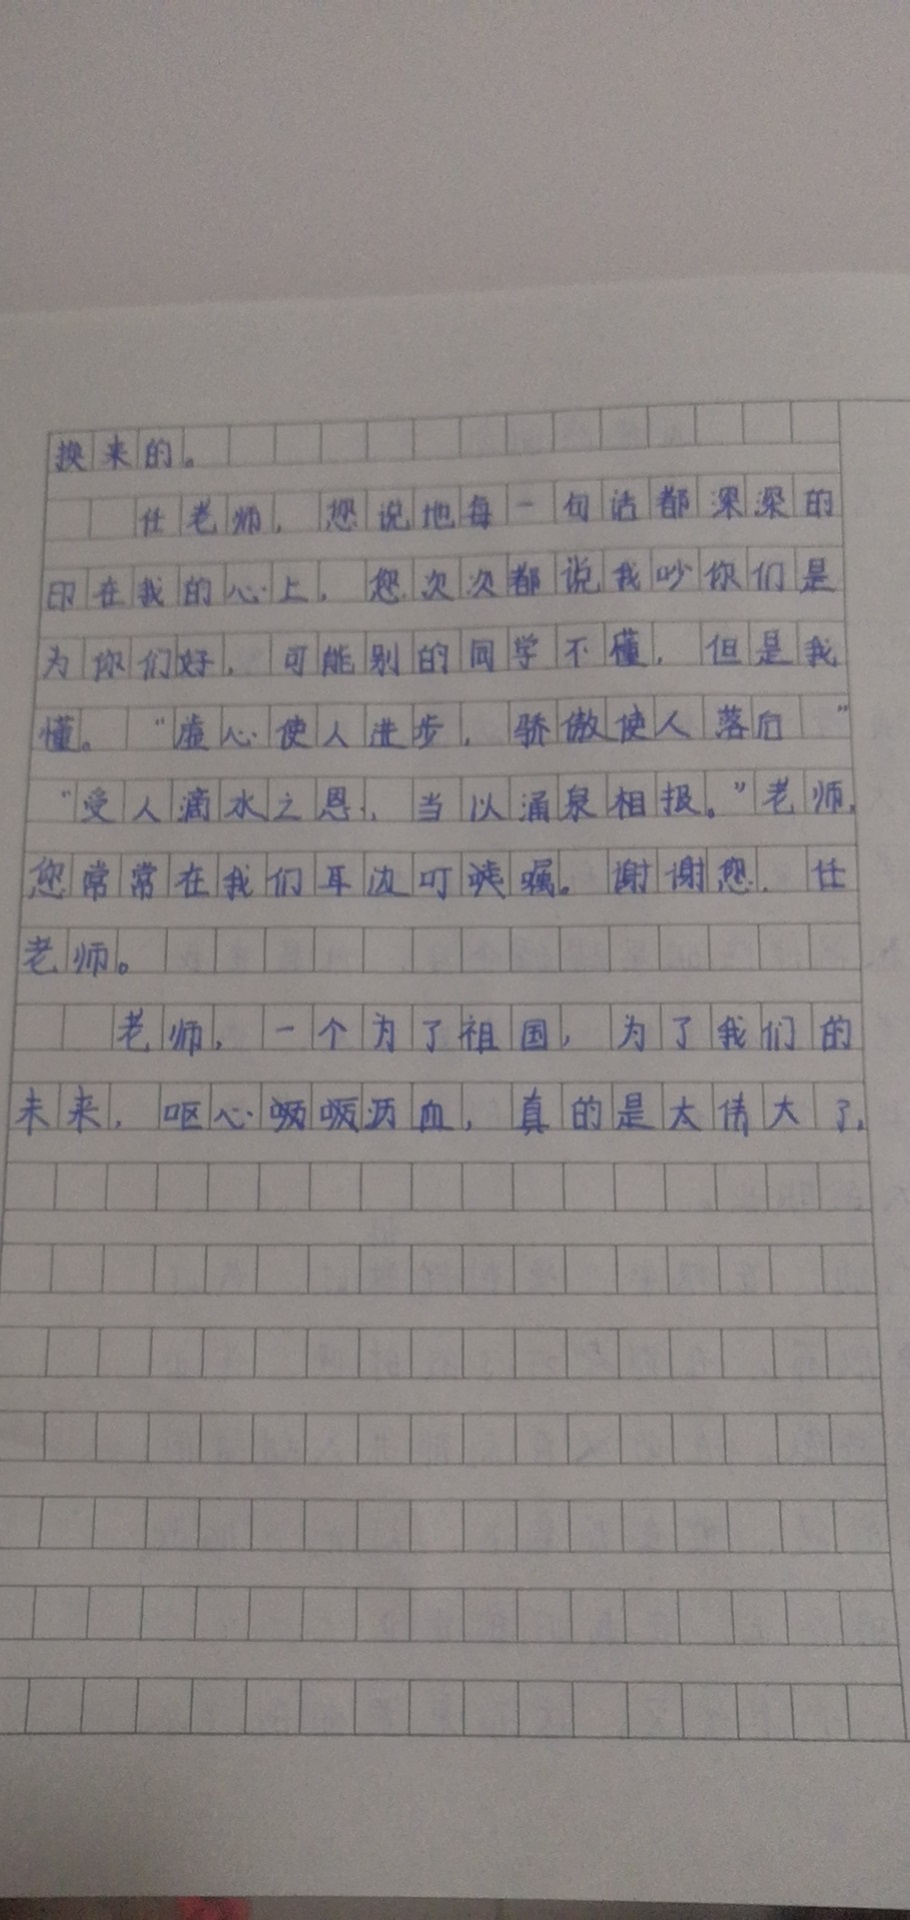 换来的。
任老师，您说地每一句话都深深的
印在我的心上，您次次都说我吵你们是
为你们好，可能别的同学不懂，但是我
懂。“虚心使人进步，骄傲使人落后”
“受人滴水之恩，当以涌泉相报。”老师，
您常常在我们耳边叮嘱。谢谢您，任
老师。
老师，一个为了祖国，为了我们的
未来，呕心沥血，真的是太伟大了，